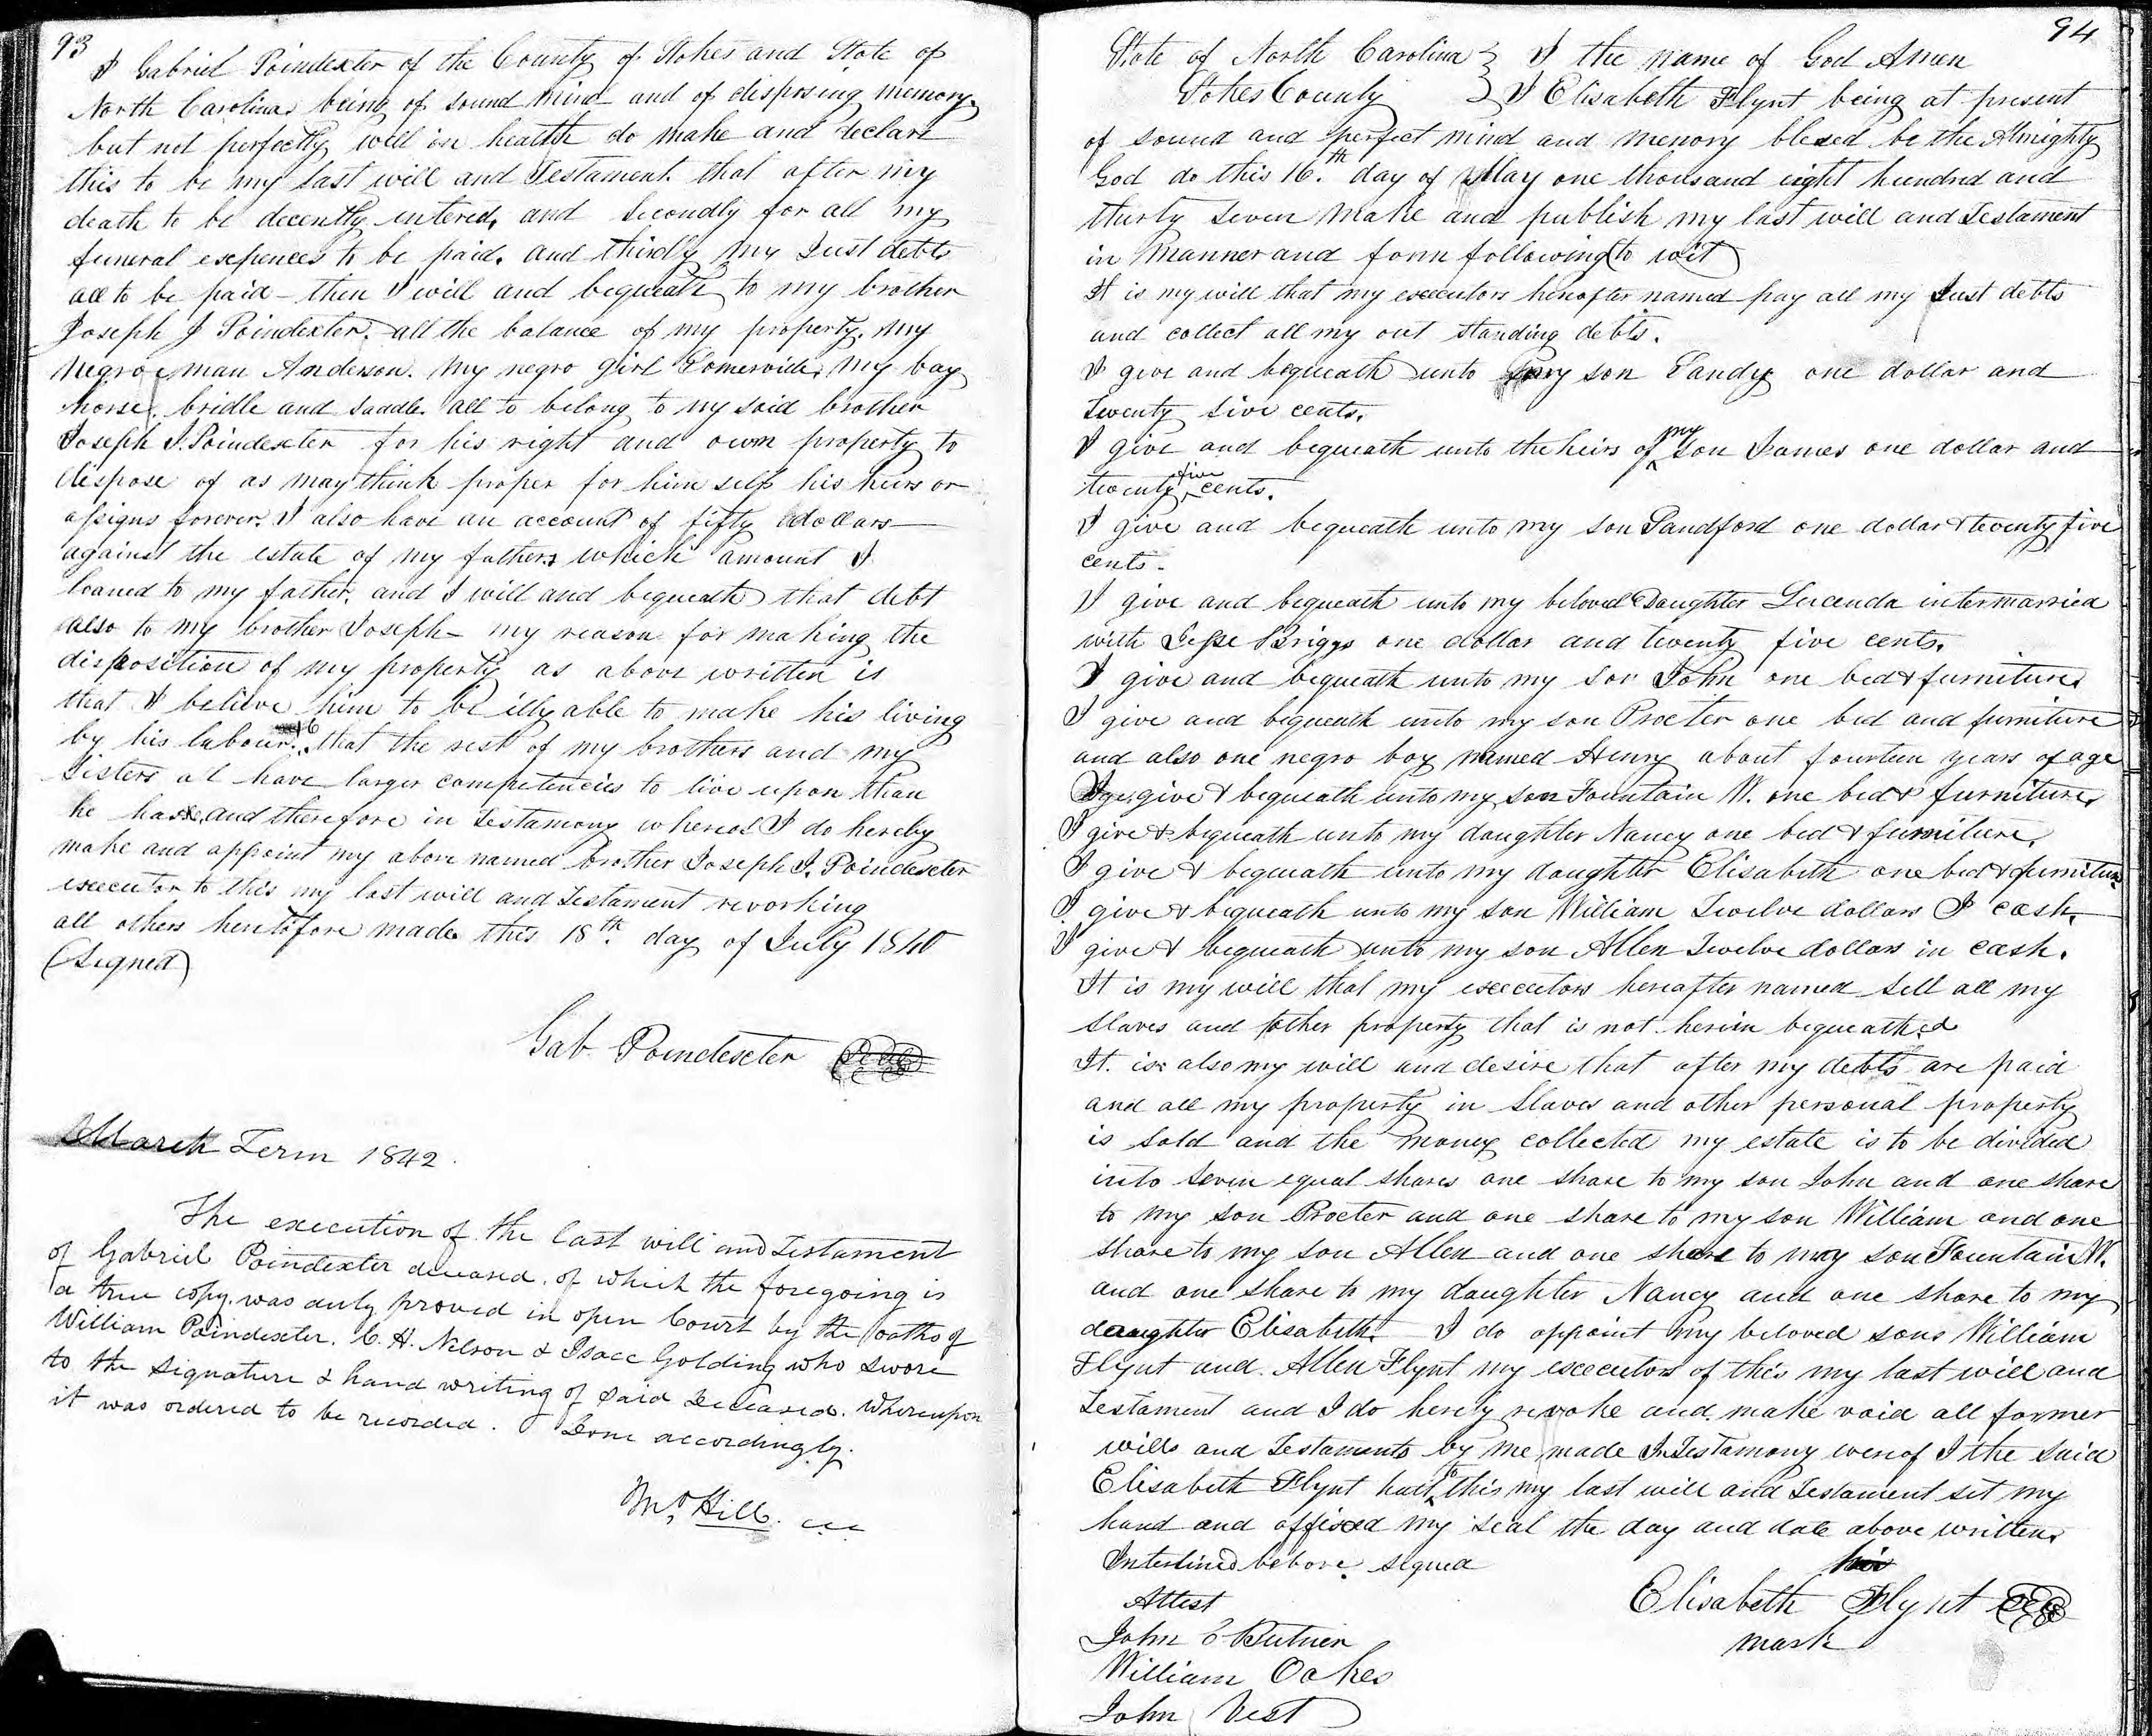 93
I Gabriel Poindexter of the County of Stokes and State of
North Carolina being of sound mind and of disposing memory
but not perfectly well in health do make and declare
this to be my last will and Testament. that after my
death to be decently intered, and Secondly for all my
funeral expences to be paid. and thirdly my Just debts
all to be paid - then I will and bequeath to my brother
Joseph J Poindexter. all the balance of my property. My
Negro man Anderson. My negro girl Somervide, My bay
horse, bridle and saddle. all to belong to my said brother
Joseph J. Poindexter for his right and own property to
dispose of as may think proper for him self his heirs or
assigns forever. I also have an account of fifty dollars
against the estate of my fathers which amount I
loaned to my father. and I will and bequeath that debt
also to my brother Joseph - my reason for making the
disposition of my property as above written is
that I believe him to be illy able to make his living
by his labour. & that the rest of my brothers and my
sisters al have larger competencies to live upon than
he has. and therefore in Testamony whereof I do hereby
make and appoint my above named brother Joseph J. Poindexter
executor to this my last will and Testament revorking
all others heretofore made this 18th. day of July 1840
(Signed)
Gab Poindexter Seal
March Term 1842.
The execution of the last will and Testament
of Gabriel Poindexter deceased, of which the foregoing is
a true copy. was duly proved in open Court by the oaths of
William Poindexter. C. H. Nelson & Isaac Golding who swore
to the signature & hand writing of said Deceased. Whereupon
it was ordered to be recorded. Done accordingly.
Mo. Hill. ccc
94
State of North Carolina } I the name of God Amen
Stokes County } I Elisabeth Flynt being at present
of sound and perfect mind and memory blesed be the Almighty
God do this 16.th day of May one thousand eight hundred and
thirty Seven make and publish my last will and Testament
in Manner and form following (to wit)
It is my will that my executors hereafter named pay all my Just debts
and collect all my out standing debts.
I give and bequeath unto my son Sandy one dollar and
Twenty five cents.
I give and bequeath unto the heirs of my son James one dollar and
twenty five cents.
I give and bequeath unto my son Sandford one dollar & twenty five
cents.
I give and bequeath unto my beloved Daughter Lucenda intermarried
with Jesse Briggs one dollar and twenty five cents.
I give and bequeath unto my son John one bed & furniture
I give and bequeath unto my son Procter one bed and furniture
and also one negro boy named Henry about fourteen years of age
I give & bequeath unto my son Fountain W. one bed & furniture,
I give & bequeath unto my daughter Nancy one bed & furniture.
I give & bequeath unto my daughter Elisabeth one bed & furniture
I give & bequeath unto my son William Twelve dollars I cash.
I give & bequeath unto my son Allen Twelve dollars in cash.
It is my will that my executors hereafter named sell all my
slaves and other property that is not herein bequeathed
It is also my will and desire that after my debts are paid
and all my property in slaves and other personal property
is sold and the money collected my estate is to be divided
into seven equal shares one share to my son John and one share
to my son Procter and one share to my son William and one
share to my son Allen and one share to my son Fountain W.
and one share to my daughter Nancy and one share to my
daughter Elisabeth. I do appoint my beloved sons William
Flynt and Allen Flynt my executors of this my last will and
Testament and I do hereby revoke and make void all former
wills and Testaments by me made In Testamony wereof I the said
Elisabeth Flynt hath to this my last will and Testament set my
hand and affixed my seal the day and date above written.
Interlined before signed
Attest
John E Butner
William Oakes
John Vest
his
Elisabeth Flynt Seal
mark